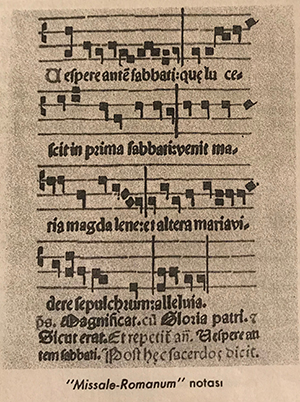 Uespere antē sabbati: quę lu ce-
scit in prima sabbati: venit ma-
ria magdalene: et altera mariavi-
dere sepulchrum: alleluia.
p̄s. Magnificat. cū Gloria patri. ⁊
Sicut erat. Et repetit̄ añ. Uespere an
tem sabbati. Post hęc sacerdos dicit.
"Missale-Romanum" notası